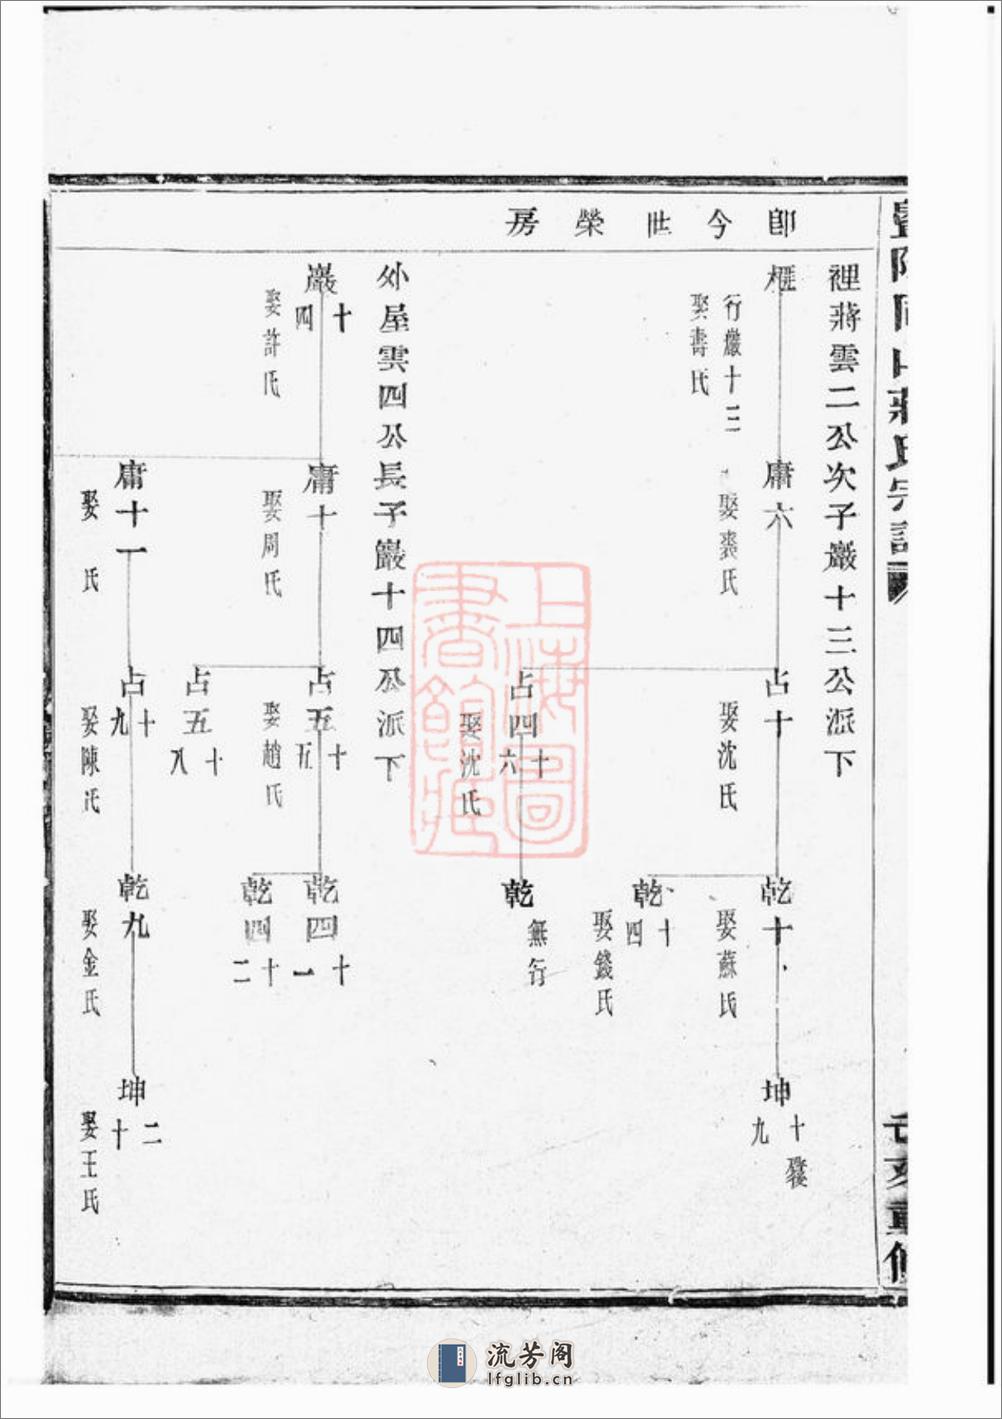 暨陽同山蔣氏宗譜
辛亥重修
即今世榮房
裡蔣雲二公次子巖十三公派下
榧
行巖十三
娶壽氏
庸六
娶裘氏
占十
娶沈氏
占四十六
娶沈氏
乾十
娶蘇氏
乾十四
娶錢氏
乾
無行
坤十九
外屋雲四公長子巖十四公派下
巖十四
娶許氏
庸十
娶周氏
庸十一
娶 氏
占五十五
娶趙氏
占五十八
占十九
娶陳氏
乾四十一
乾四十二
乾九
娶金氏
坤二十
娶王氏
上海圖書館藏
流芳阁
lfglib.cn